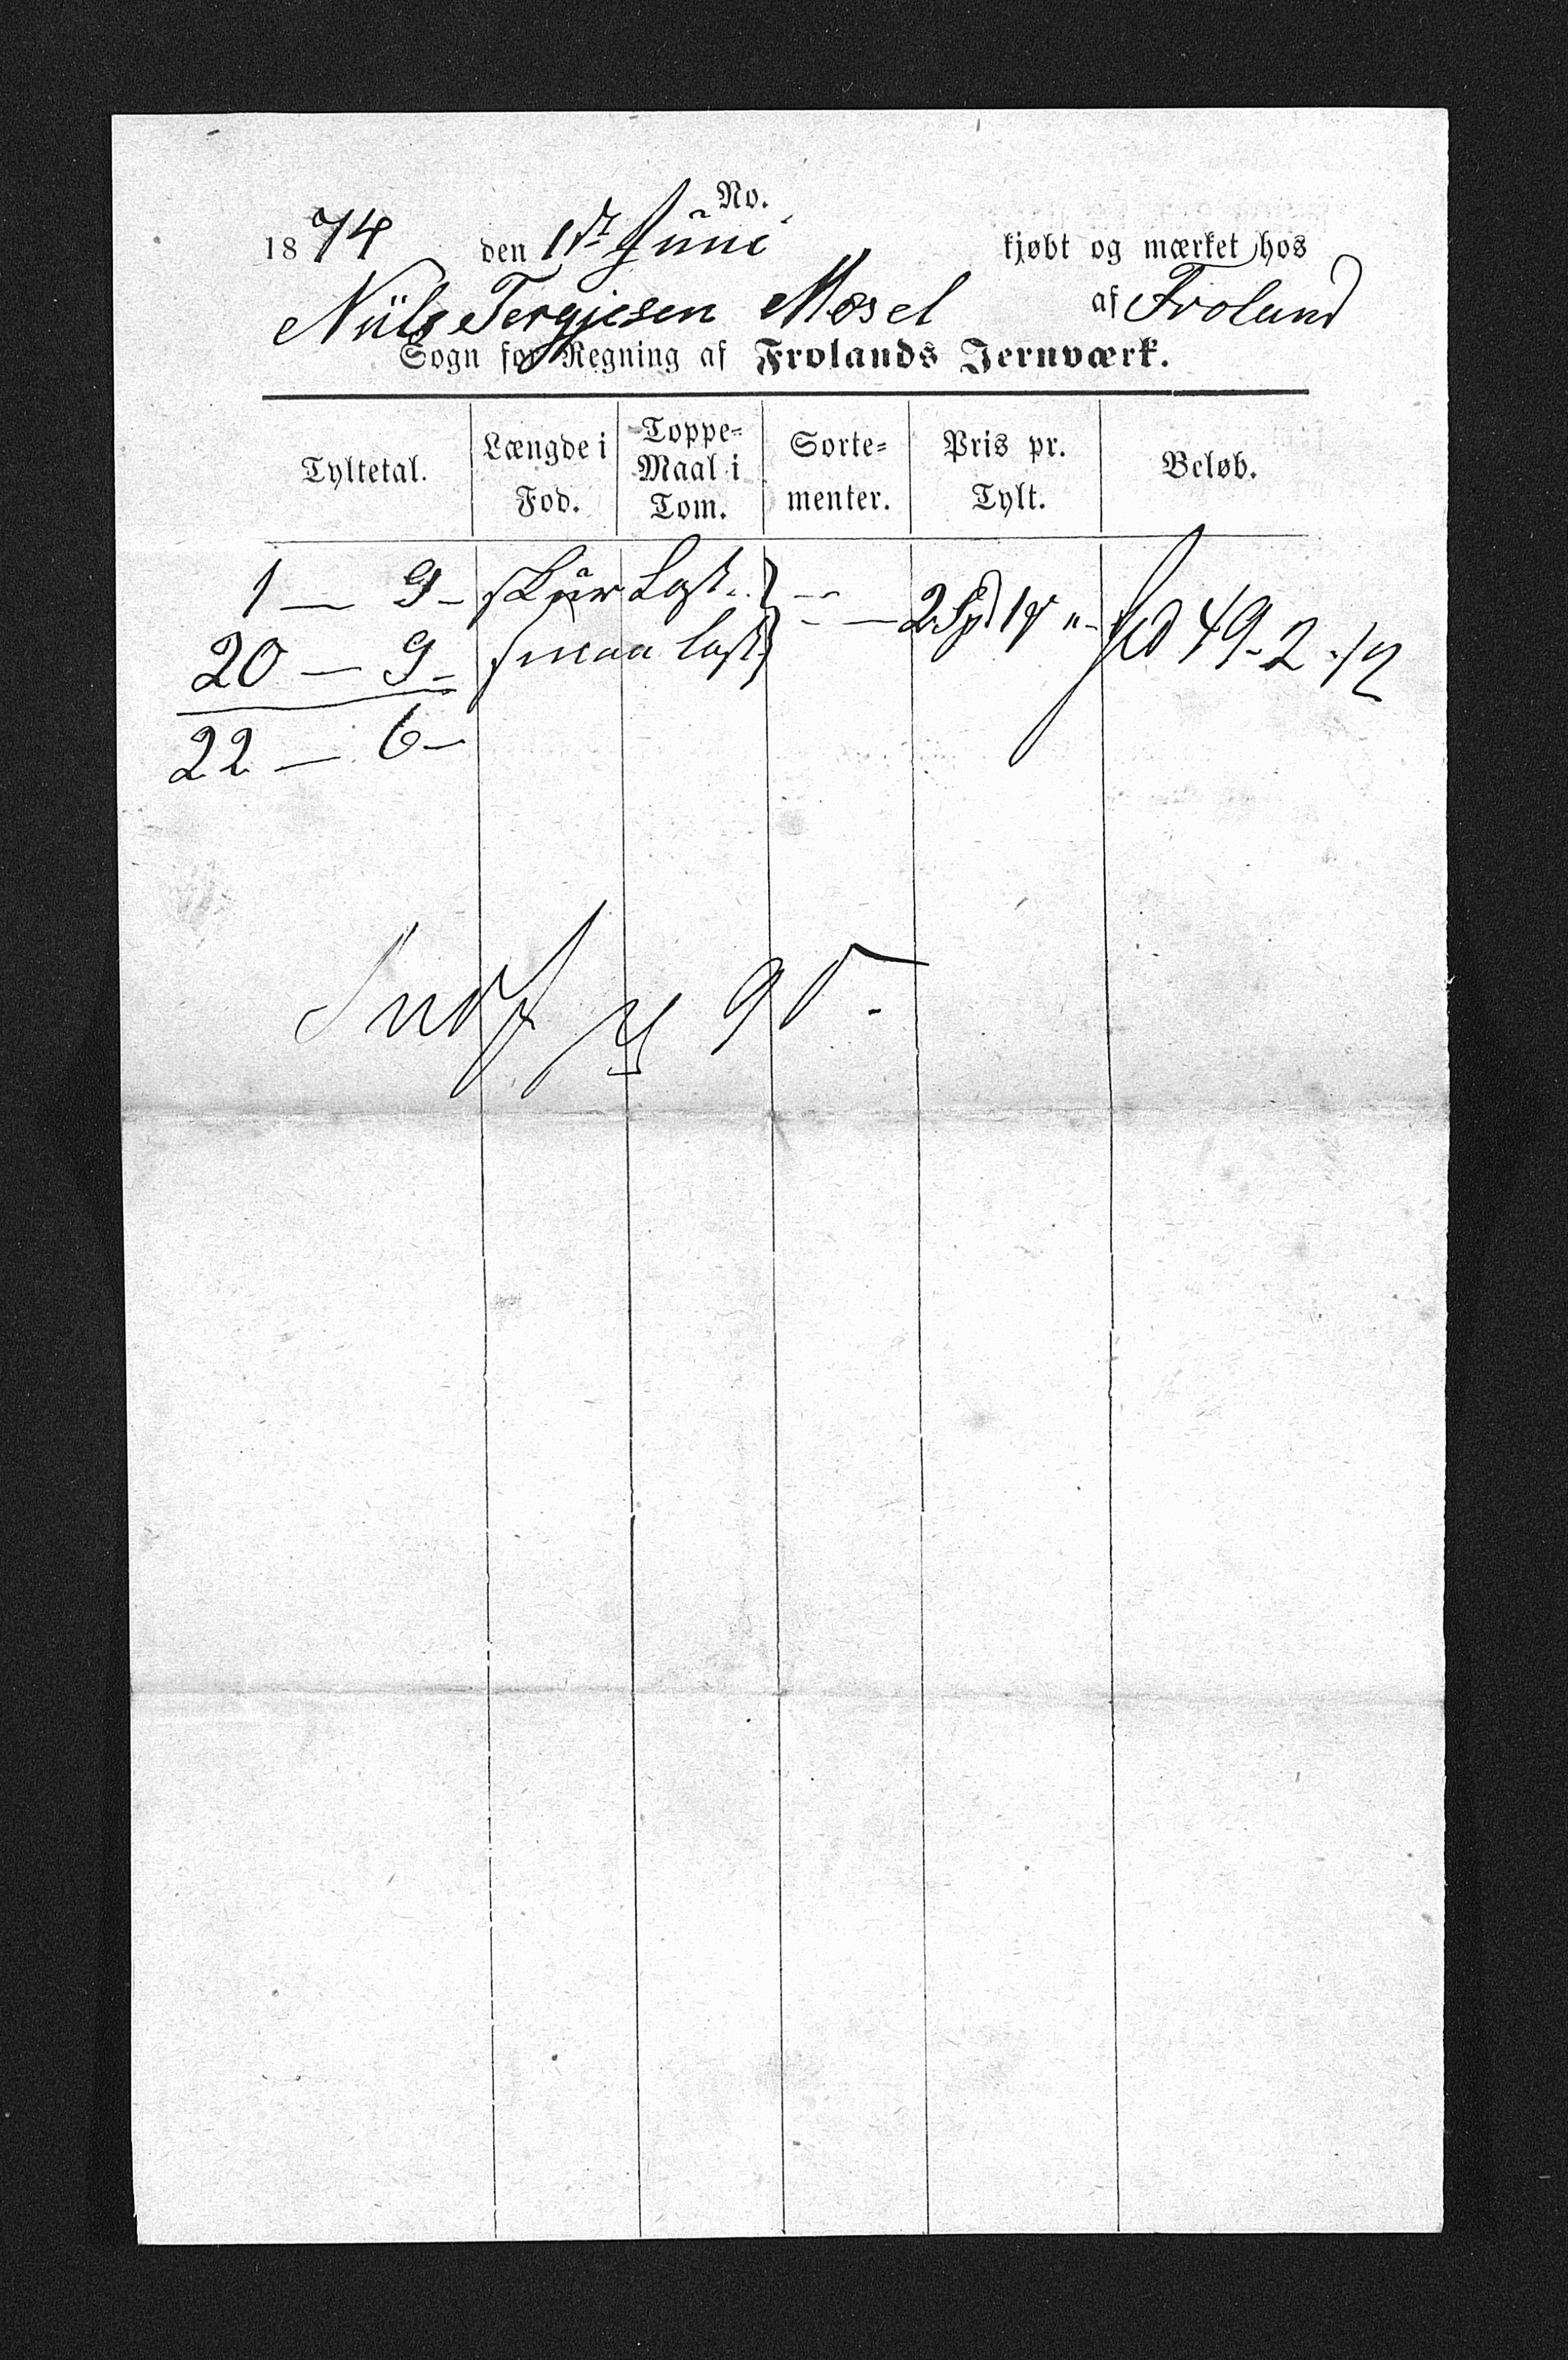 No.
1874 den 1ste Juni kjøbt og mærket hos
Niils Tergjesen Mæsel af Froland
Sogn for Regning af Frolands Jernværk.
Tyltetal. Længde i Fod. Toppe-Maal i Tom. Sorte-menter. Pris pr. Tylt. Beløb.
1 — 9 - skur Last. } - - — 2 Spd 1 " - Spd 49 - 2 . 12
20 — 9 - smaa last }
22 — 6 -
Indf